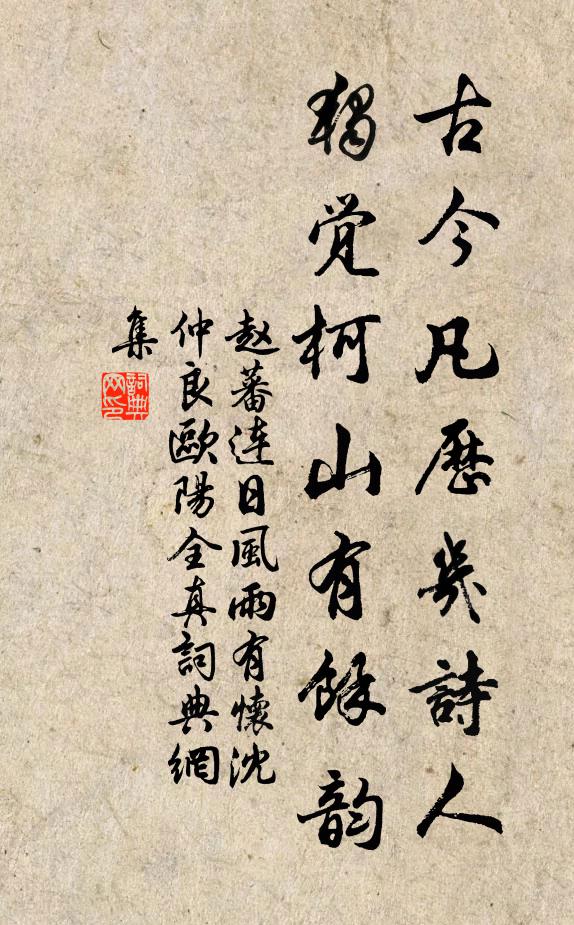 古今凡歷幾詩人
獨覺柯山有餘韵
赵蕃連日風雨有懷沈
仲良歐陽全真詞典網
集
詞典網印